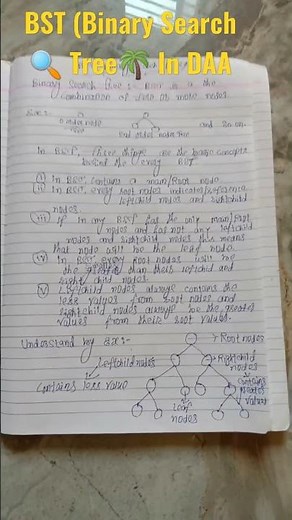 BST (Binary Search
🔍 Tree🌴 In DAA
Binary Search Tree :- BST is a the
combination of zero or more nodes.
Ex:-
0 order node
Tree
and so on.
In BST, three things are the basic concepts
behind the every BST
(i) In BST, contains a main/Root node.
(ii) In BST, every root nodes indicate/reference
leftchild nodes and rightchild
nodes.
(iii) If in any BST has the only main/root
nodes and has not any leftchild
nodes and rightchild nodes this means
that node will be the leaf node.
(iv) In BST every root nodes will be
the greater than their leftchild and
right child nodes.
(v) Leftchild nodes always contains the
less values from root nodes and
rightchild nodes always be the greater
values from their root values.
Understand by ex:-
Root nodes
Leftchild nodes
Rightchild
nodes
Contains less value
Contains
greater
values
Leaf
nodes